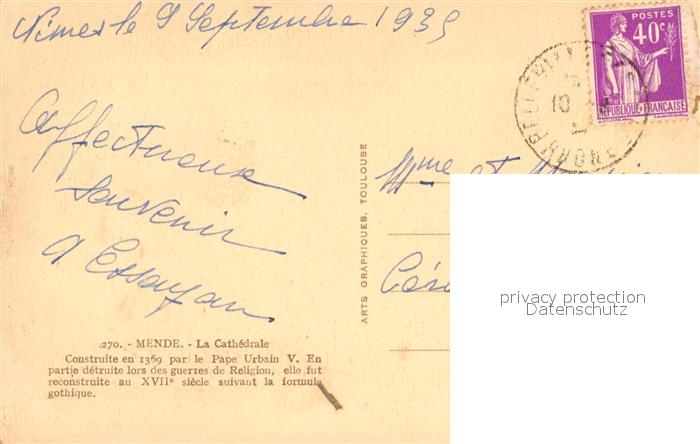 Nimes le 9 Septembre 1935
POSTES
40c
REPUBLIQUE FRANCAISE
10
RHONE
Affectueux
souvenir
Mme et
ARTS GRAPHIQUES, TOULOUSE
privacy protection
Datenschutz
270. - MENDE. - La Cathédrale
Construite en 1369 par le Pape Urbain V. En
partie détruite lors des guerres de Religion, elle fut
reconstruite au XVIIe siècle suivant la formule
gothique.